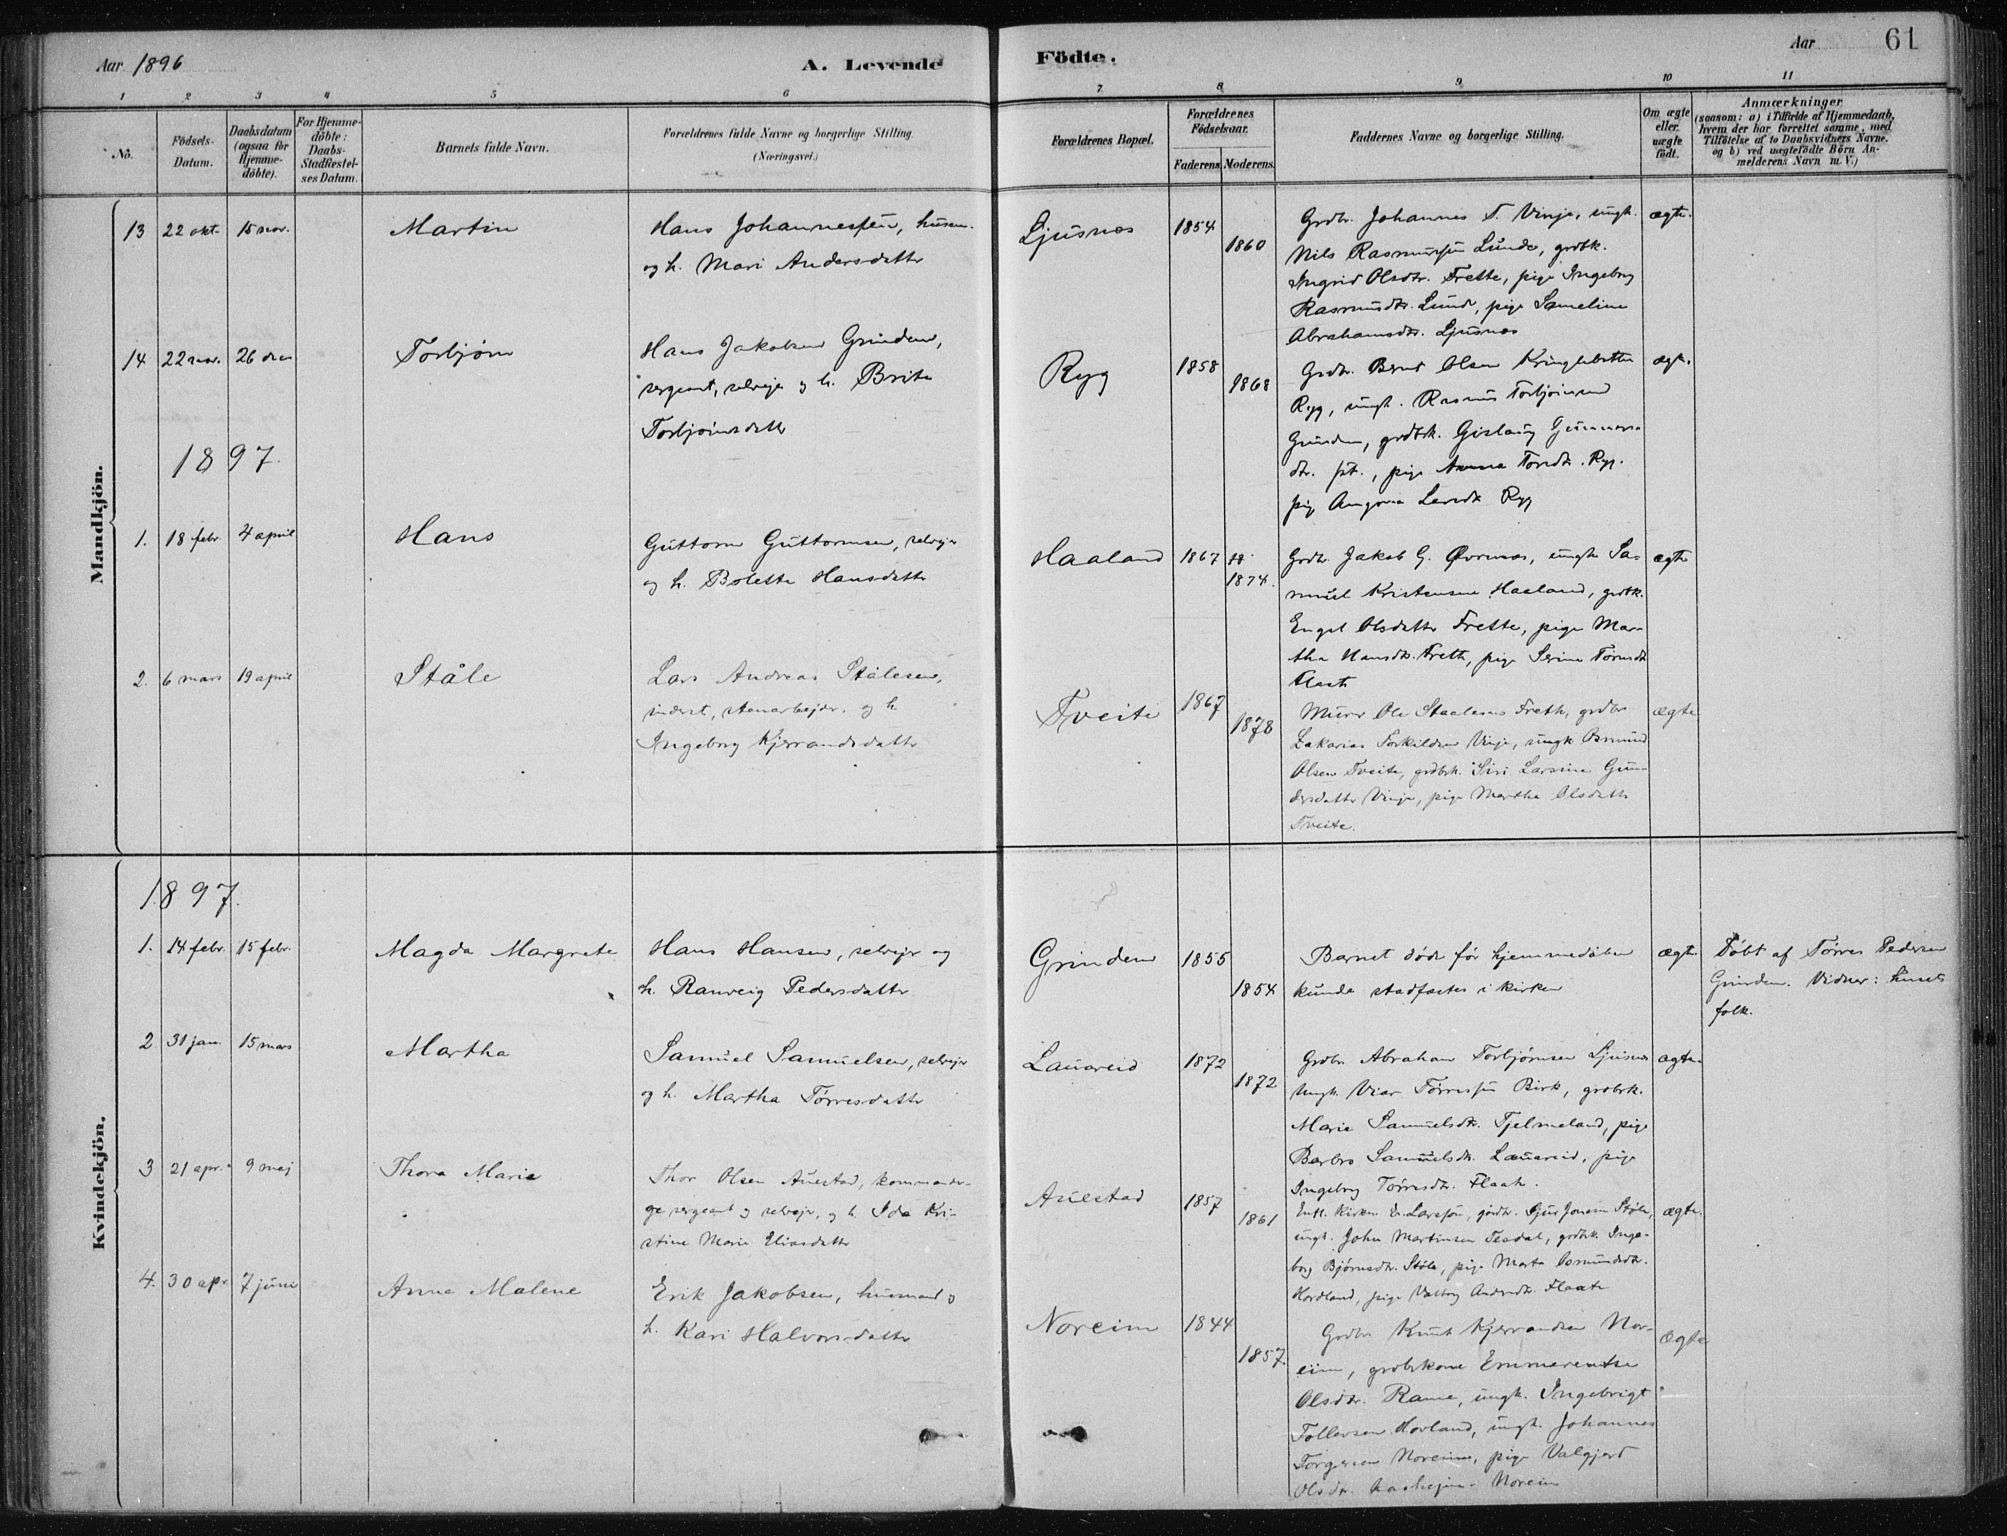 Aar 1896
A. Levende
Födte.
Aar
61
1 2 3 4 5 6 7 8 9 10 11
No.
Födsels-Datum.
Daabsdatum (ogsaa for Hjemme-döbte).
For Hjemme-döbte: Daabs-Stadfæstel-ses Datum.
Barnets fulde Navn.
Forældrenes fulde Navne og borgerlige Stilling.
(Næringsvei.)
Forældrenes Bopæl.
Forældrenes Födselsaar.
Faderens. Moderens.
Faddernes Navne og borgerlige Stilling.
Om ægte eller uægte födt.
Anmærkninger
(saasom: a) i Tilfælde af Hjemmedaab,
hvem der har forrettet samme, med
Tilföielse af to Daabsvidners Navne.
og b) ved uægtefödte Börn An-
melderens Navn m. V.)
Mandkjön.
13 22 okt. 15 nov. Martin
Hans Johannessen, husm.
og h. Mari Andersdatter
Ljusnes 1854 1860
Grdbr. Johannes T. Vinje, ungk.
Nils Rasmussen Lunde, grdbk.
Ingrid Olsdtr. Frette, pige Ingeborg
Rasmusdtr. Lunde, pige Sameline
Abrahamsdtr. Ljusnes
ægte.
14 22 nov. 26 dec Torbjørn
Hans Jakobsen Grinden,
sergeant, selvejer og h. Brita
Torbjørnsdatter
Ryg 1858 1868
Grdbr. Bernt Olsen Kringlebotten
Ryg, ungk. Rasmus Torbjørnsen
Grinden, grdbk. Gislaug Gunnars-
dtr. , pige Anna Torsdtr. Ryg.
pige Larsdtr Ryg
ægte.
1897.
1. 18 febr. 4 april Hans
Guttorm Guttormsen, selvejer
og h. Bolette Hansdatter
Haaland 1867 1874.
Grdbr. Jakob G. Øvrenes, ungk. Sa-
muel Kristensen Haaland, grdbk.
Engel Olsdatter Frette, pige Mar-
tha Hansdtr. Frette, pige Serine
ægte
2. 6 mars 19 april Ståle
Lars Andreas Stålesen,
inderst, stenarbejder, og h.
Ingeborg Kjerrandsdatter
Tveite 1867 1878
Murer Ole Staalesen Frette, grdbr
Zakarias Torkildsen Vinje, ungk Osmund
Olsen Tveite, grdbrk. Siri Larsine Gun-
dersdatter Vinje, pige Martha Olsdatter
Tveite.
ægte
Kvindekjön.
1897.
1. 14 febr. 15 febr. Magda Margrete
Hans Hansen, selvejer og
h. Ranveig Pedersdatter
Grinden 1855 1854
Barnet døde før hjemmedåben
kunde stadfæstes i kirken
ægte
Døbt af Tørres Pedersen
Grinden. Vidner: husets
folk.
2 31 jan. 15 mars Martha
Samuel Samuelsen, selvejer
og h. Martha Tørresdatter
Lauareid 1872 1872
Grdbr. Abraham Torbjørnsen Ljusnes
ungk. Viar Tørressen Birk, grdbrk.
Marie Samuelsdtr. Tjelmeland, pige
Barbro Samuelsdtr. Lauareid, pige
Ingeborg Tørresdtr. Flaate.
ægte
3 21 apr. 9 maj Thora Marie
Thor Olsen Auestad, kommande-
ge sergeant og selvejer, og h. Ida Kri-
stine Marie Eliasdatter
Auestad 1857 1861
E. Larssen, grdbr. Sjur Jonsen Støle,
ungk. John Martinsen Teadal, grdbk. Inge-
borg Bjørnsdtr. Støle, pige Marta Osmundsdtr.
Hordland, pige Valborg Andersdtr. Flaate
ægte.
4. 30 apr. 7 juni Anna Malene
Erik Jakobsen, husmand og
h. Kari Halvorsdatter
Noreim 1844 1857.
Grdbr Knut Kjerrandsen Nor-
eim, grdbrkone Emmerentse
Olsdtr. Rame, ungk. Ingebrigt
Tollevsen Hovland, ungk. Johannes
Torgersen Noreim, pige Valgjerd
Olsdtr. Noreim
ægte